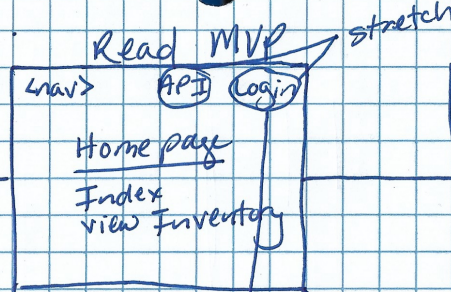 Read MVP
stretch
<nav> API Login
Home page
Index
view Inventory